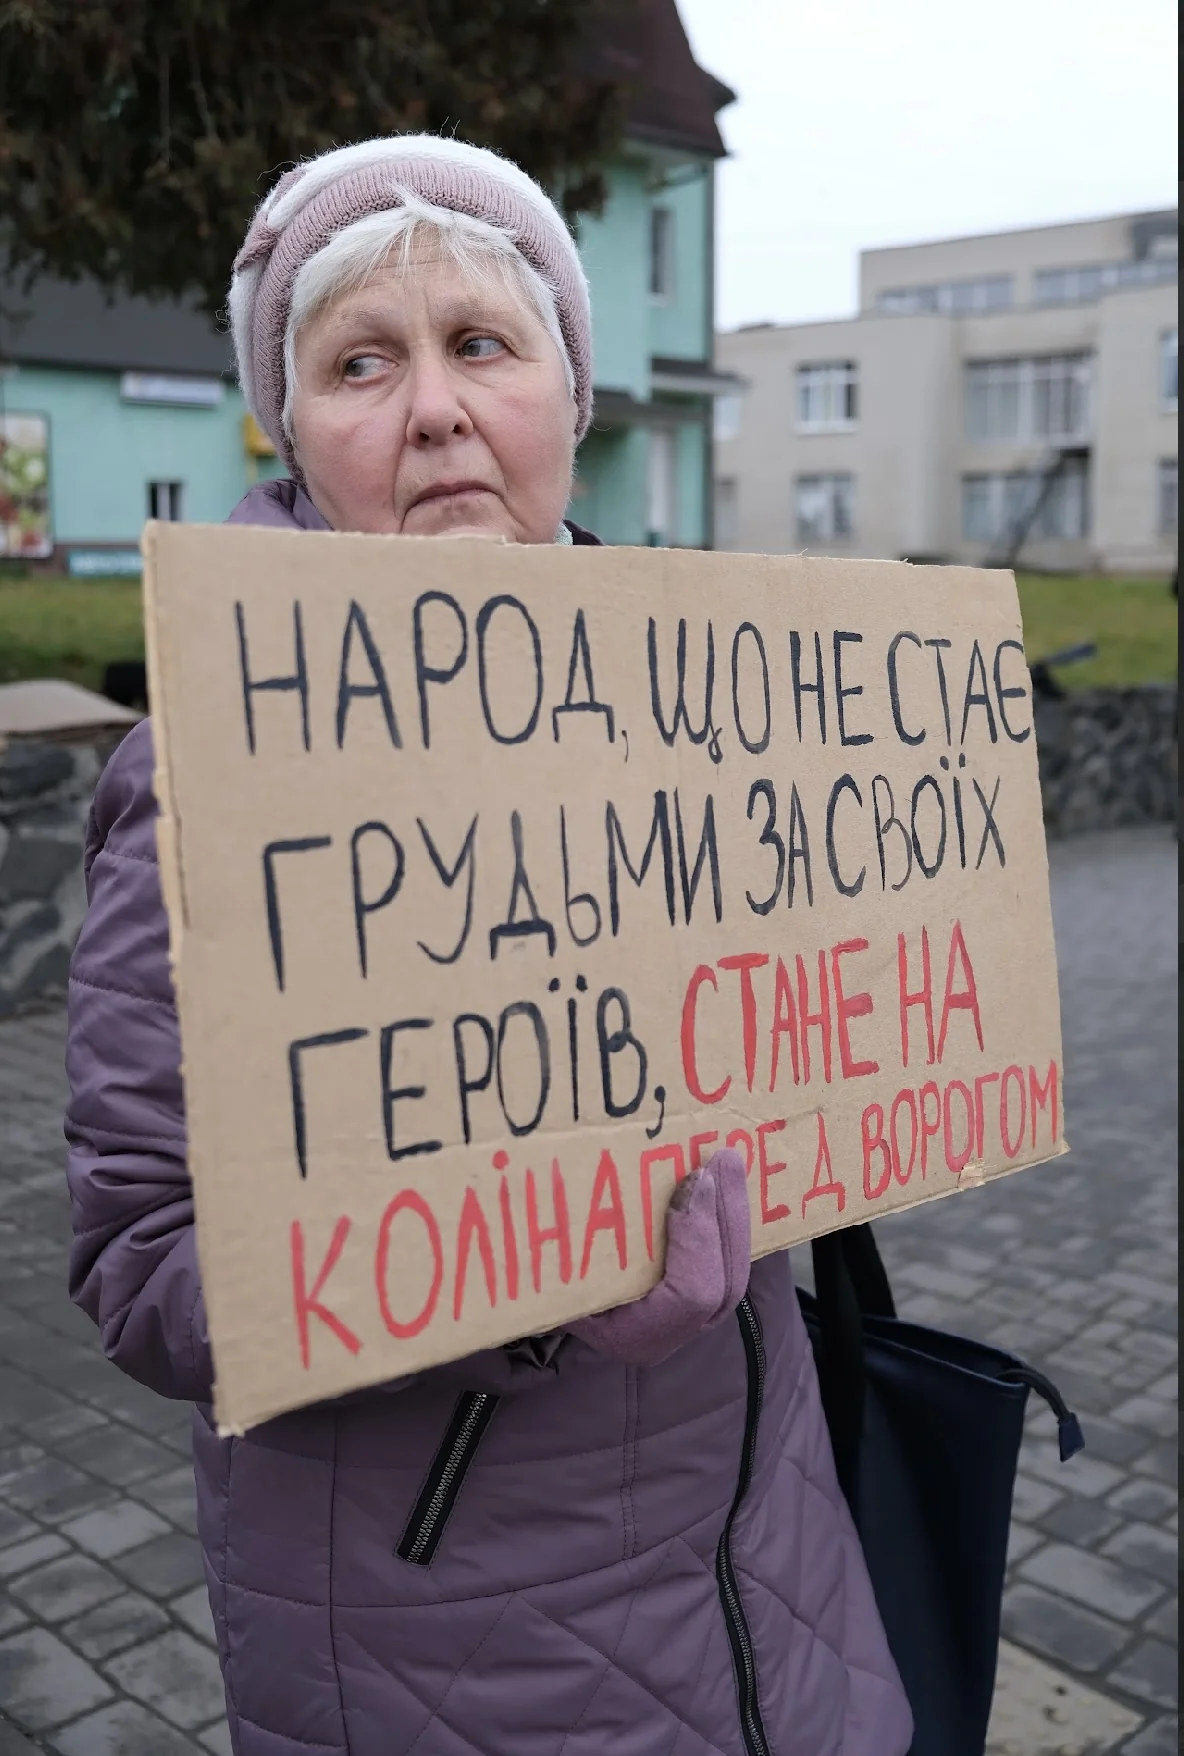 НАРОД, ЩО НЕ СТАЄ
ГРУДЬМИ ЗА СВОЇХ
ГЕРОЇВ, СТАНЕ НА
КОЛІНА ПЕРЕД ВОРОГОМ